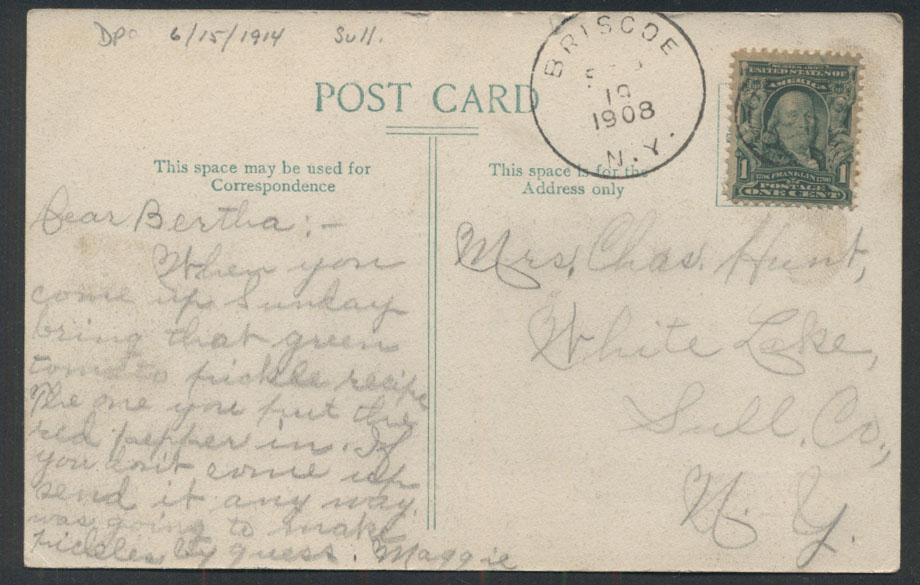 DPO 6/15/1914 Sull.
BRISCOE
SEP
19
1908
N.Y.
SERIES 1902
UNITED STATES OF
AMERICA
1 FRANKLIN 1
POSTAGE
ONE CENT
POST CARD
This space may be used for
Correspondence
This space is for the
Address only
Dear Bertha:-
When you
come up Sunday
bring that green
tomato pickle recipe
The one you put the
red pepper in. If
you don't come up
send it any way.
was going to make
pickles by guess. Maggie
Mrs. Chas. Hunt,
White Lake,
Sull. Co.,
N.Y.